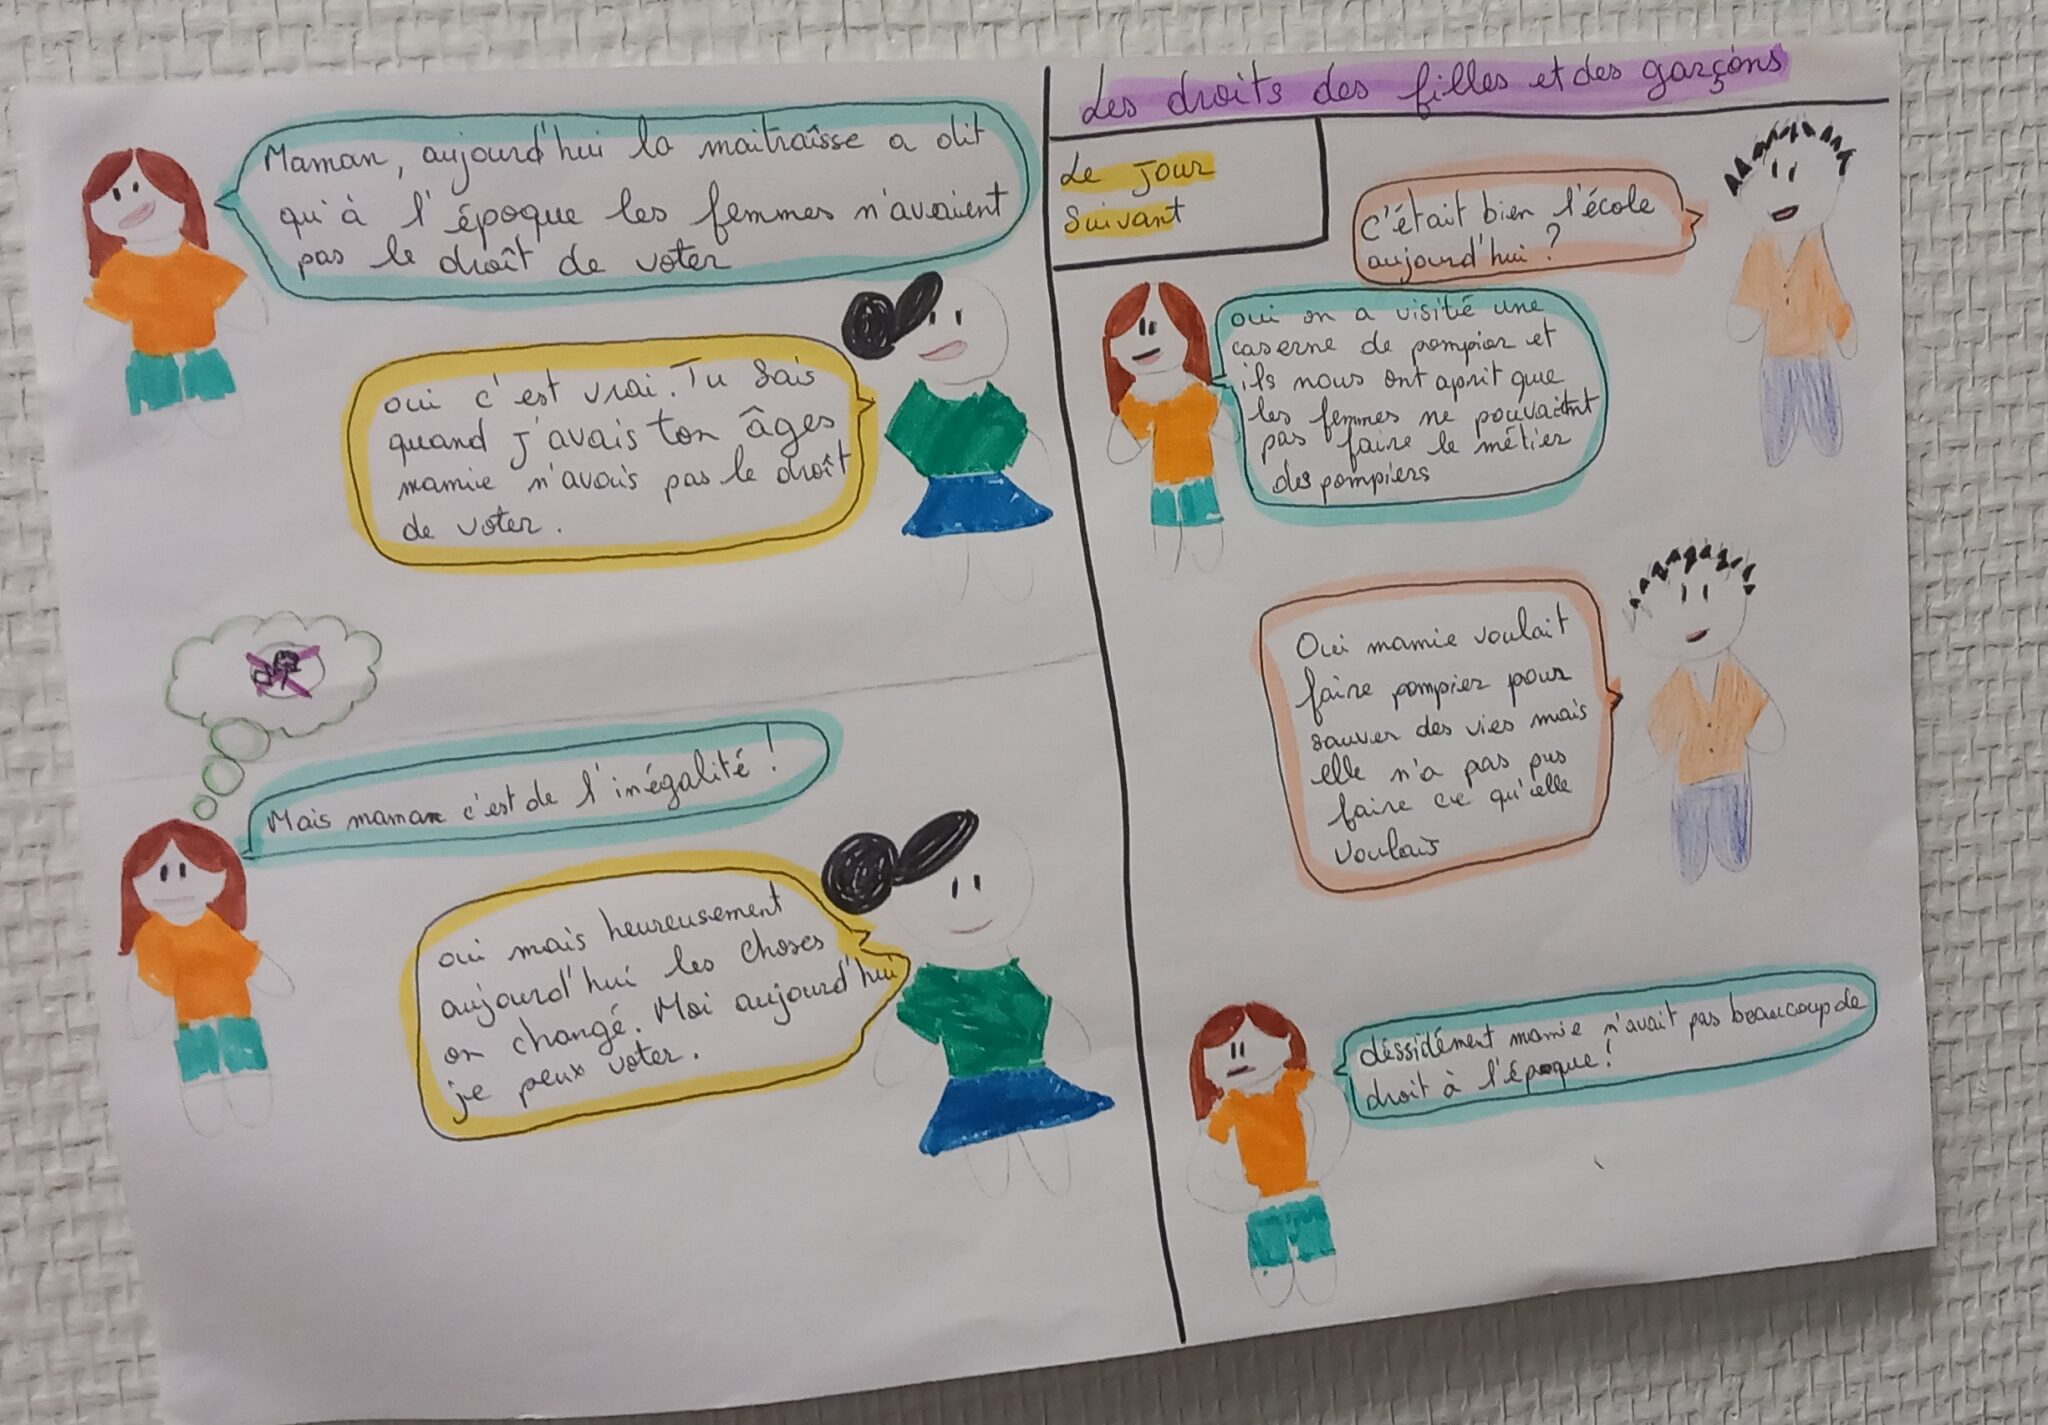 Les droits des filles et des garçons
Maman, aujourd'hui la maitraîsse a dit
qu'à l'époque les femmes n'avaient
pas le droît de voter
oui c'est vrai. Tu sais
quand j'avais ton âges
mamie n'avais pas le droît
de voter.
Mais maman c'est de l'inégalité !
oui mais heureusement
aujourd'hui les choses
on changé. Moi aujourd'hui
je peux voter.
Le jour
suivant
c'était bien l'école
aujourd'hui ?
oui on a visité une
caserne de pompier et
ils nous ont aprit que
les femmes ne pouvaitnt
pas faire le métier
des pompiers
Oui mamie voulait
faire pompier pour
sauver des vies mais
elle n'a pas pus
faire ce qu'elle
voulais
déssidément mamie n'avait pas beaucoup de
droit à l'époque !